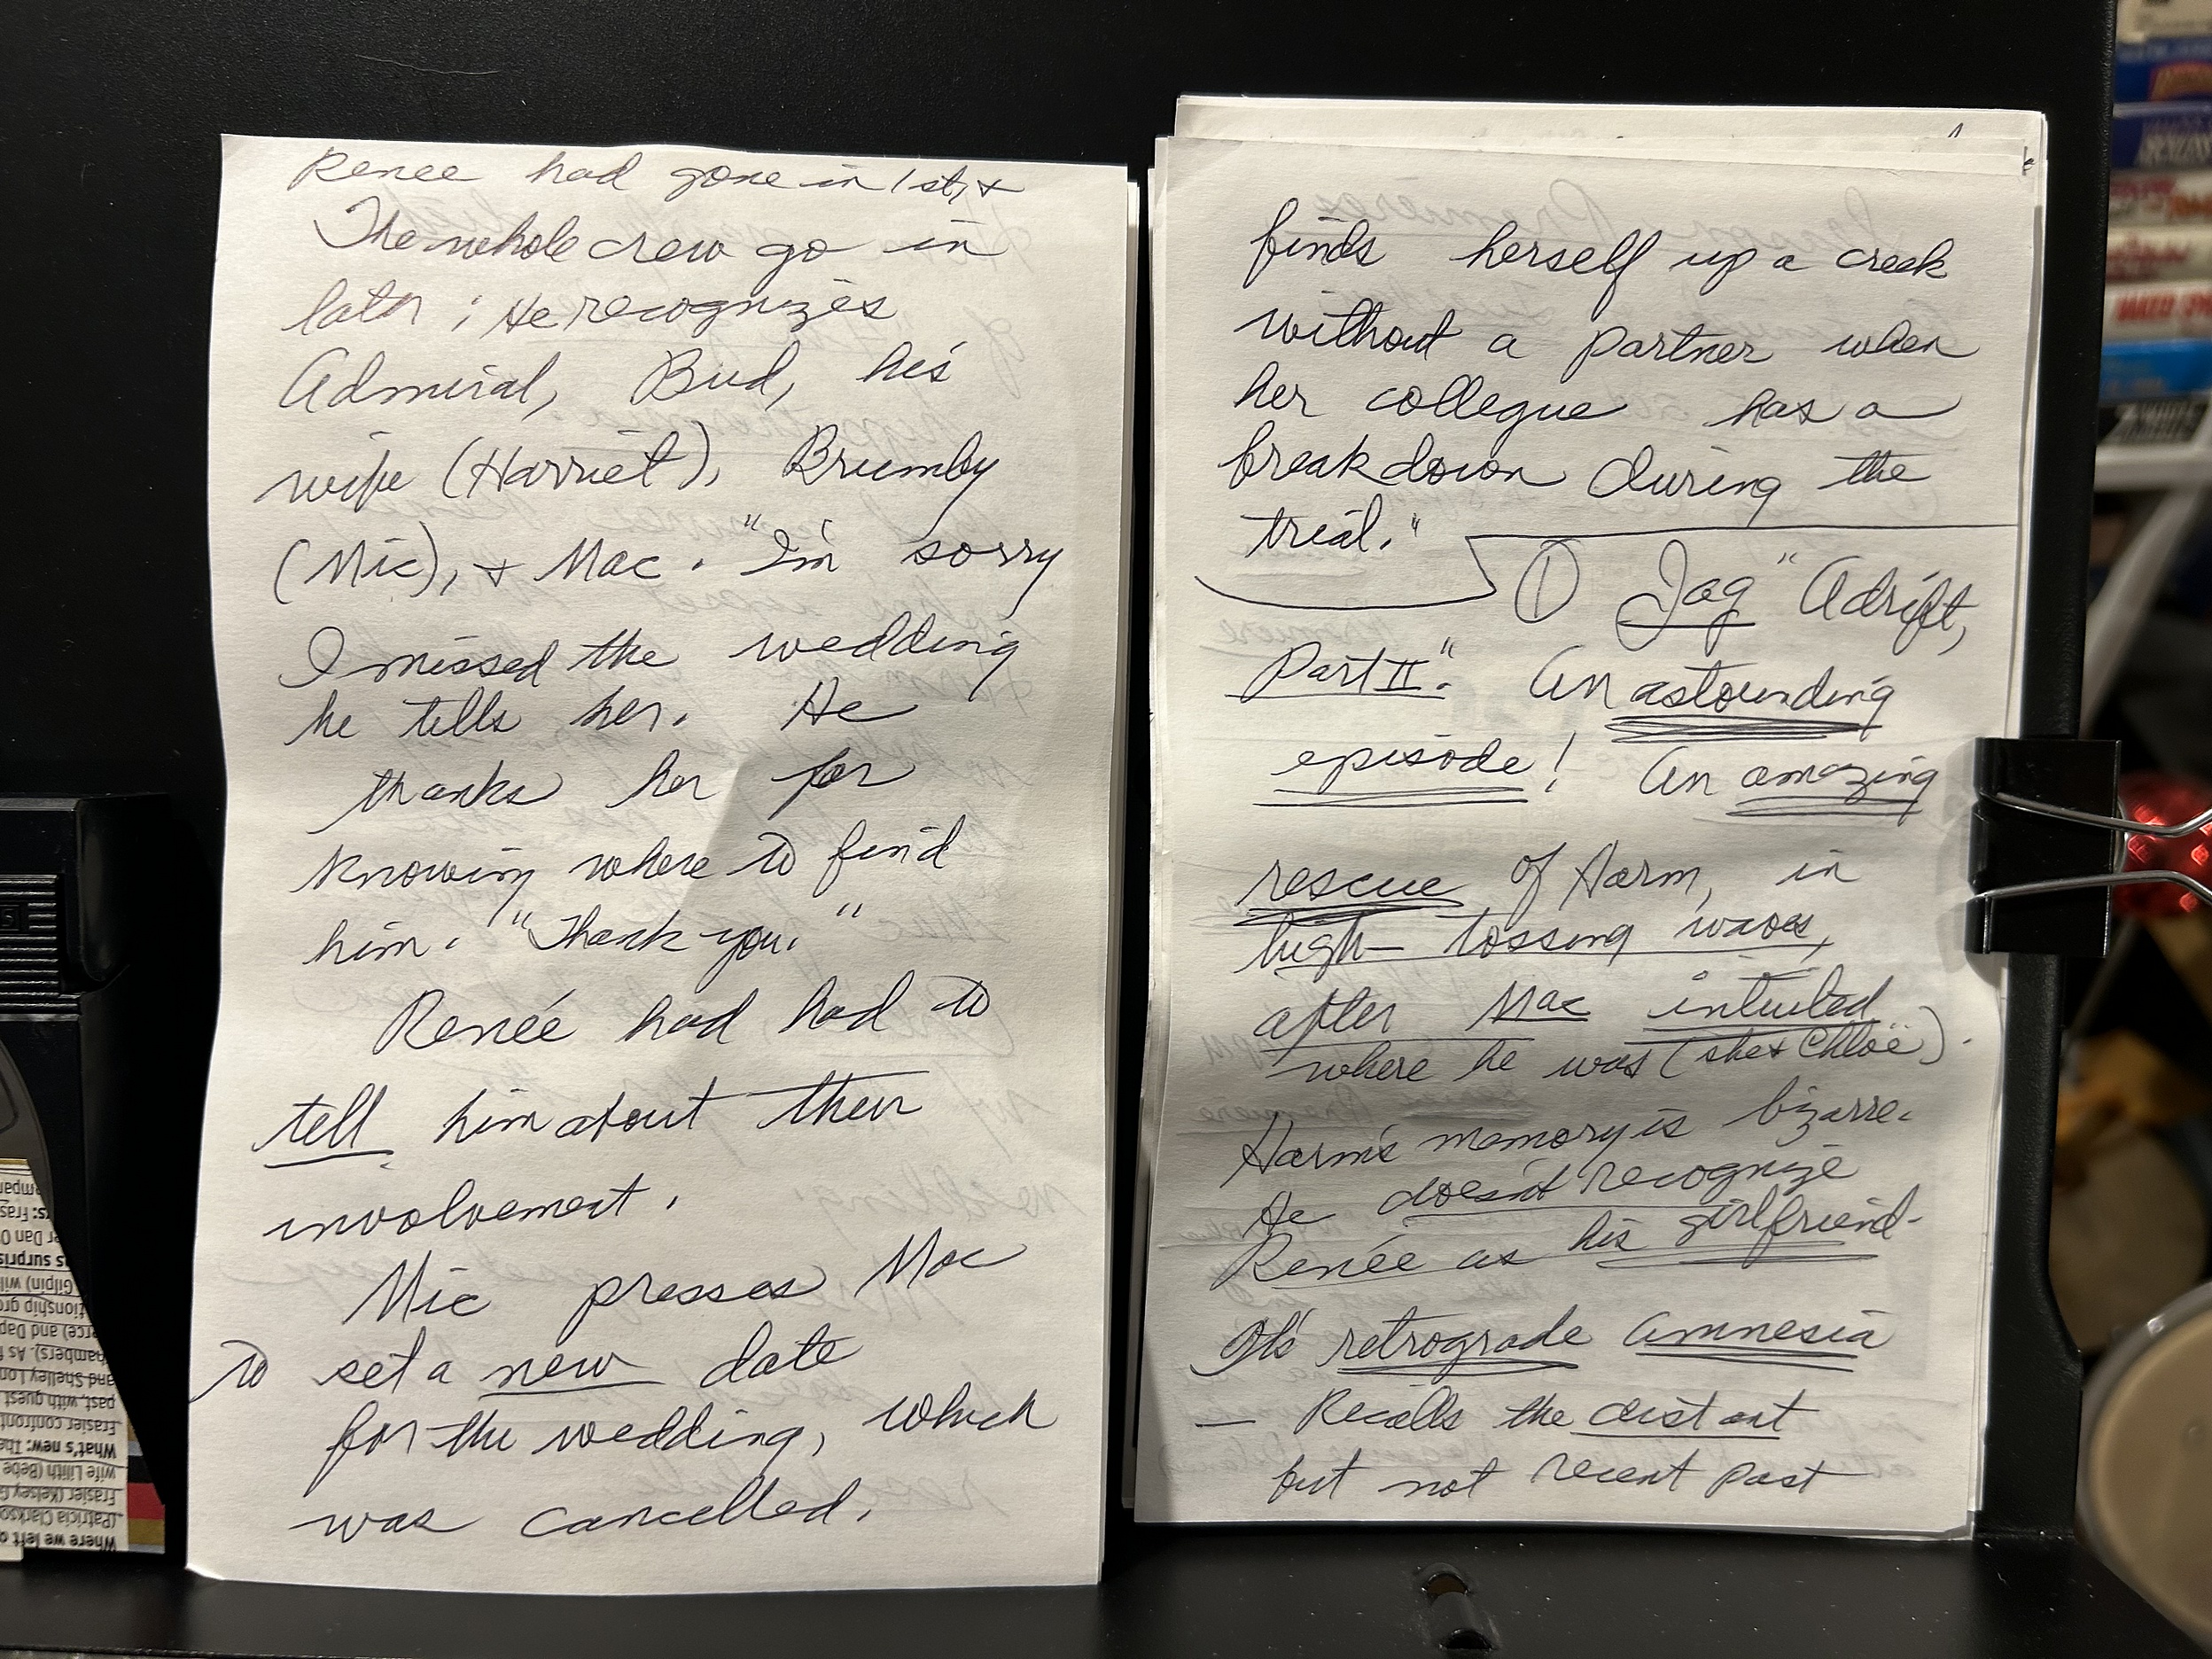 Renee had gone in 1st, &
The whole crew go in
later; He recognizes
Admiral, Bud, his
wife (Harriet), Brumby
(Mic), & Mac. "I'm sorry
I missed the wedding
he tells her. He
thanks her for
knowing where to find
him. "Thank you."
Renée had had to
tell him about their
involvement.
Mic presses Mac
to set a new date
for the wedding, which
was cancelled.
finds herself up a creek
without a partner when
her collegue has a
breakdown during the
trial."
① Jag "Adrift,
Part II". An astounding
episode! An amazing
rescue of Harm, in
high-tossing waves,
after Mac intuited
where he was (she & Chloë).
Harm's memory is bizarre.
He doesn't recognize
Renée as his girlfriend-
It's retrograde amnesia
— Recalls the distant
but not recent past
Where we left o
(Patricia Clarkso
Frasier (Kelsey G
wife Lilith (Bebe
What's new: The
Frasier confront
past, with guest
and Shelley Lon
hambers). As f
erce) and Dap
tionship gro
Gilpin) wil
s surpris
er Dan O
rs: Fras
mpan